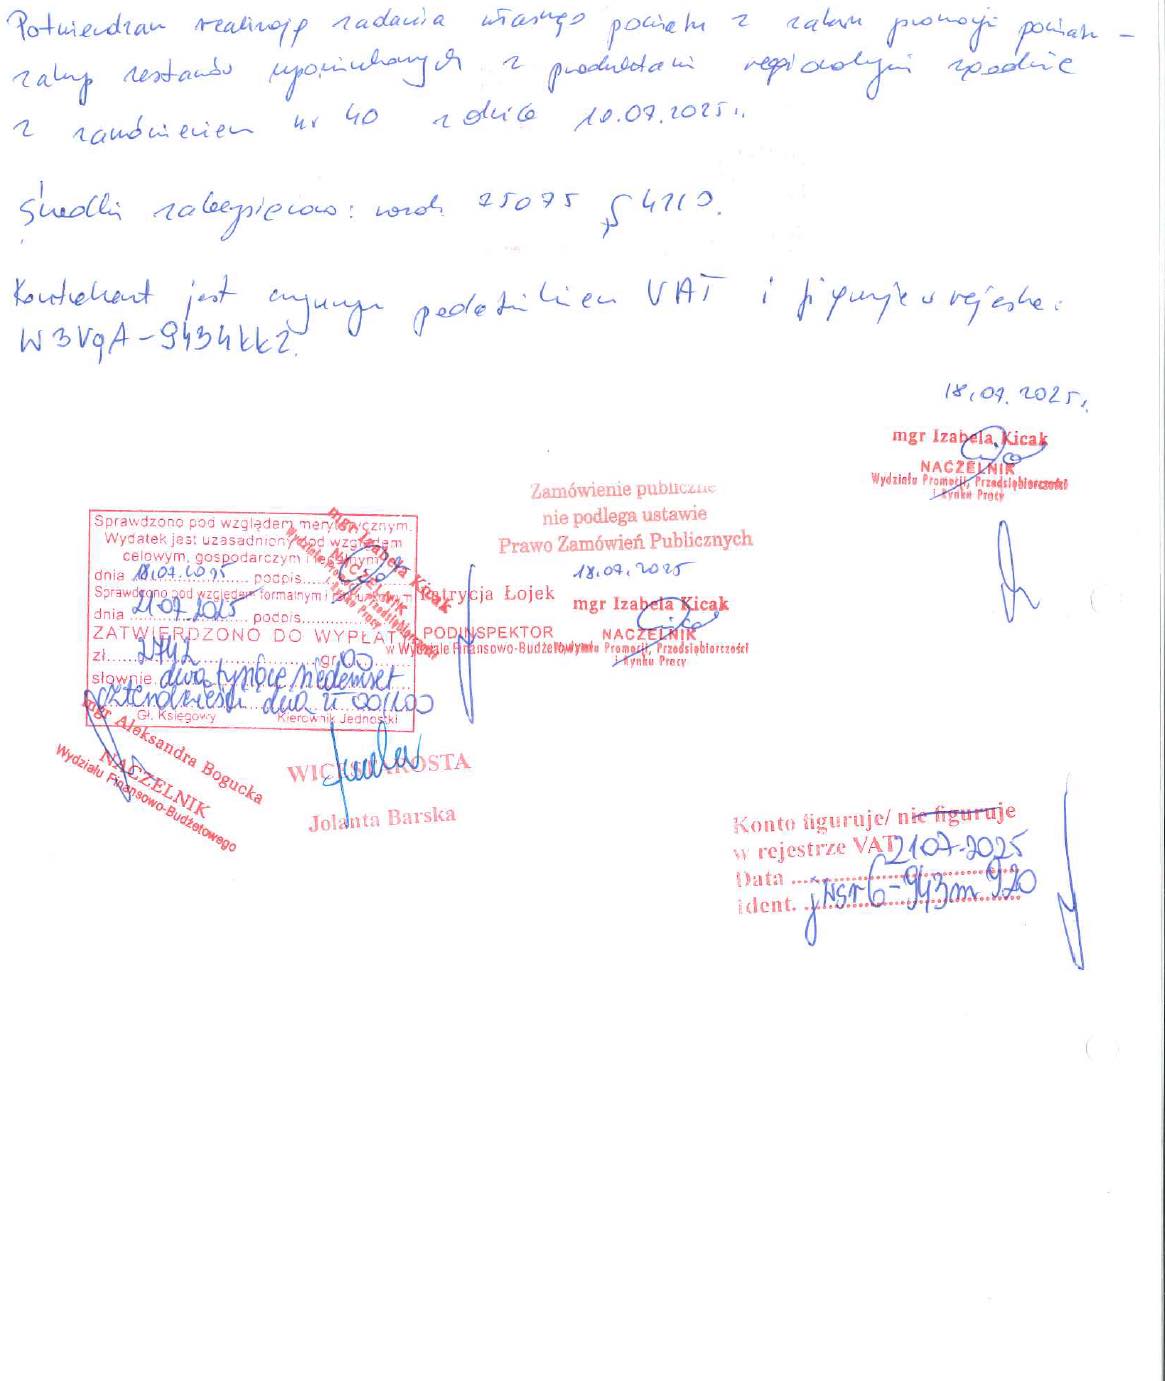 Potwierdzam realizację zadania własnego powiatu z zakresu promocji powiatu –
zakup zestawów upominkowych z produktami regionalnymi zgodnie
z zamówieniem nr 40 z dnia 10.07.2025r.
Środki zabezpieczono: rozdz. 75075 § 4210.
Kontrahent jest czynnym podatnikiem VAT i figuruje w rejestrze:
W3VqA-9434kk2.
18.07.2025r.
mgr Izabela Kicak
NACZELNIK
Wydziału Promocji, Przedsiębiorczości
i Rynku Pracy
Zamówienie publiczne
nie podlega ustawie
Prawo Zamówień Publicznych
18.07.2025
mgr Izabela Kicak
NACZELNIK
Wydziału Promocji, Przedsiębiorczości
i Rynku Pracy
Sprawdzono pod względem merytorycznym.
Wydatek jest uzasadniony pod względem
celowym, gospodarczym i legalnym
dnia 18.07.2025 podpis
mgr Izabela Kicak
NACZELNIK
Wydziału Promocji, Przedsiębiorczości
i Rynku Pracy
Sprawdzono pod względem formalnym i rachunkowym
dnia 21.07.2025 podpis
Patrycja Łojek
PODINSPEKTOR
w Wydziale Finansowo-Budżetowym
ZATWIERDZONO DO WYPŁATY
zł 2742 gr 00
słownie dwa tysiące siedemset
czterdzieści dwa zł 00/100
Gł. Księgowy Kierownik Jednostki
mgr Aleksandra Bogucka
NACZELNIK
Wydziału Finansowo-Budżetowego
WICESTAROSTA
Jolanta Barska
Konto figuruje/ nie figuruje
w rejestrze VAT
Data 21.07.2025
ident. jWsr6-943m920